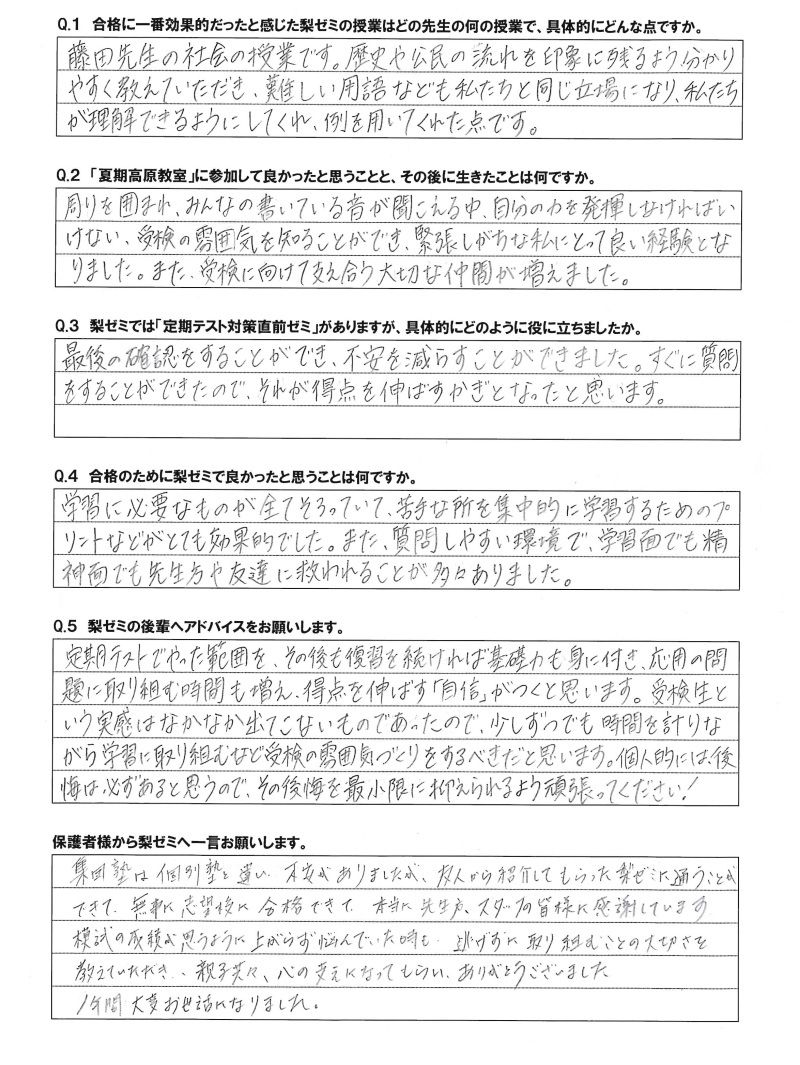 Q.1 合格に一番効果的だったと感じた梨ゼミの授業はどの先生の何の授業で、具体的にどんな点ですか。
藤田先生の社会の授業です。歴史や公民の流れを印象に残るよう、分かり
やすく教えていただき、難しい用語なども私たちと同じ立場になり、私たち
が理解できるようにしてくれ、例を用いてくれた点です。
Q.2 「夏期高原教室」に参加して良かったと思うことと、その後に生きたことは何ですか。
周りを囲まれ、みんなの書いている音が聞こえる中、自分の力を発揮しなければい
けない、受検の雰囲気を知ることができ、緊張しがちな私にとって良い経験とな
りました。また、受検に向けて支え合う大切な仲間が増えました。
Q.3 梨ゼミでは「定期テスト対策直前ゼミ」がありますが、具体的にどのように役に立ちましたか。
最後の確認をすることができ、不安を減らすことができました。すぐに質問
をすることができたので、それが得点を伸ばすかぎとなったと思います。
Q.4 合格のために梨ゼミで良かったと思うことは何ですか。
学習に必要なものが全てそろっていて、苦手な所を集中的に学習するためのプ
リントなどがとても効果的でした。また、質問しやすい環境で、学習面でも精
神面でも先生方や友達に救われることが多々ありました。
Q.5 梨ゼミの後輩へアドバイスをお願いします。
定期テストでやった範囲を、その後も復習を続ければ基礎力も身に付き、応用の問
題に取り組む時間も増え、得点を伸ばす「自信」がつくと思います。受検生と
いう実感はなかなか出てこないものであったので、少しずつでも時間を計りな
がら学習に取り組むなど受検の雰囲気づくりをするべきだと思います。個人的には、後
悔は必ずあると思うので、その後悔を最小限に抑えられるよう頑張ってください！
保護者様から梨ゼミへ一言お願いします。
集団塾は個別塾と違い 不安がありましたが、友人から紹介してもらった梨ゼミに通うことが
できて、無事に志望校に合格できて 本当に先生方、スタッフの皆様に感謝しています
模試の成績が思うように上がらず悩んでいた時も 逃げずに取り組むことの大切さを
教えていただき、親子共々、心の支えになってもらい、ありがとうございました
1年間 大変お世話になりました。